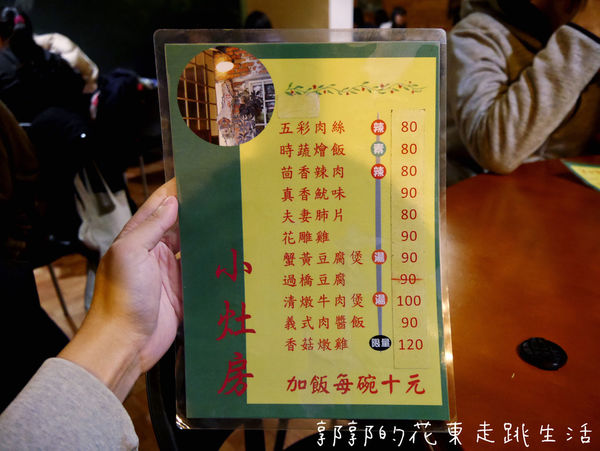 五彩肉絲 辣 80
時蔬燴飯 素 80
茴香辣肉 辣 80
真香魷味 90
夫妻肺片 80
花雕雞 90
蟹黃豆腐煲 湯 90
過橋豆腐 90
清燉牛肉煲 湯 100
義式肉醬飯 90
香菇燉雞 限量 120
加飯每碗十元
小灶房
郭郭的花東走跳生活